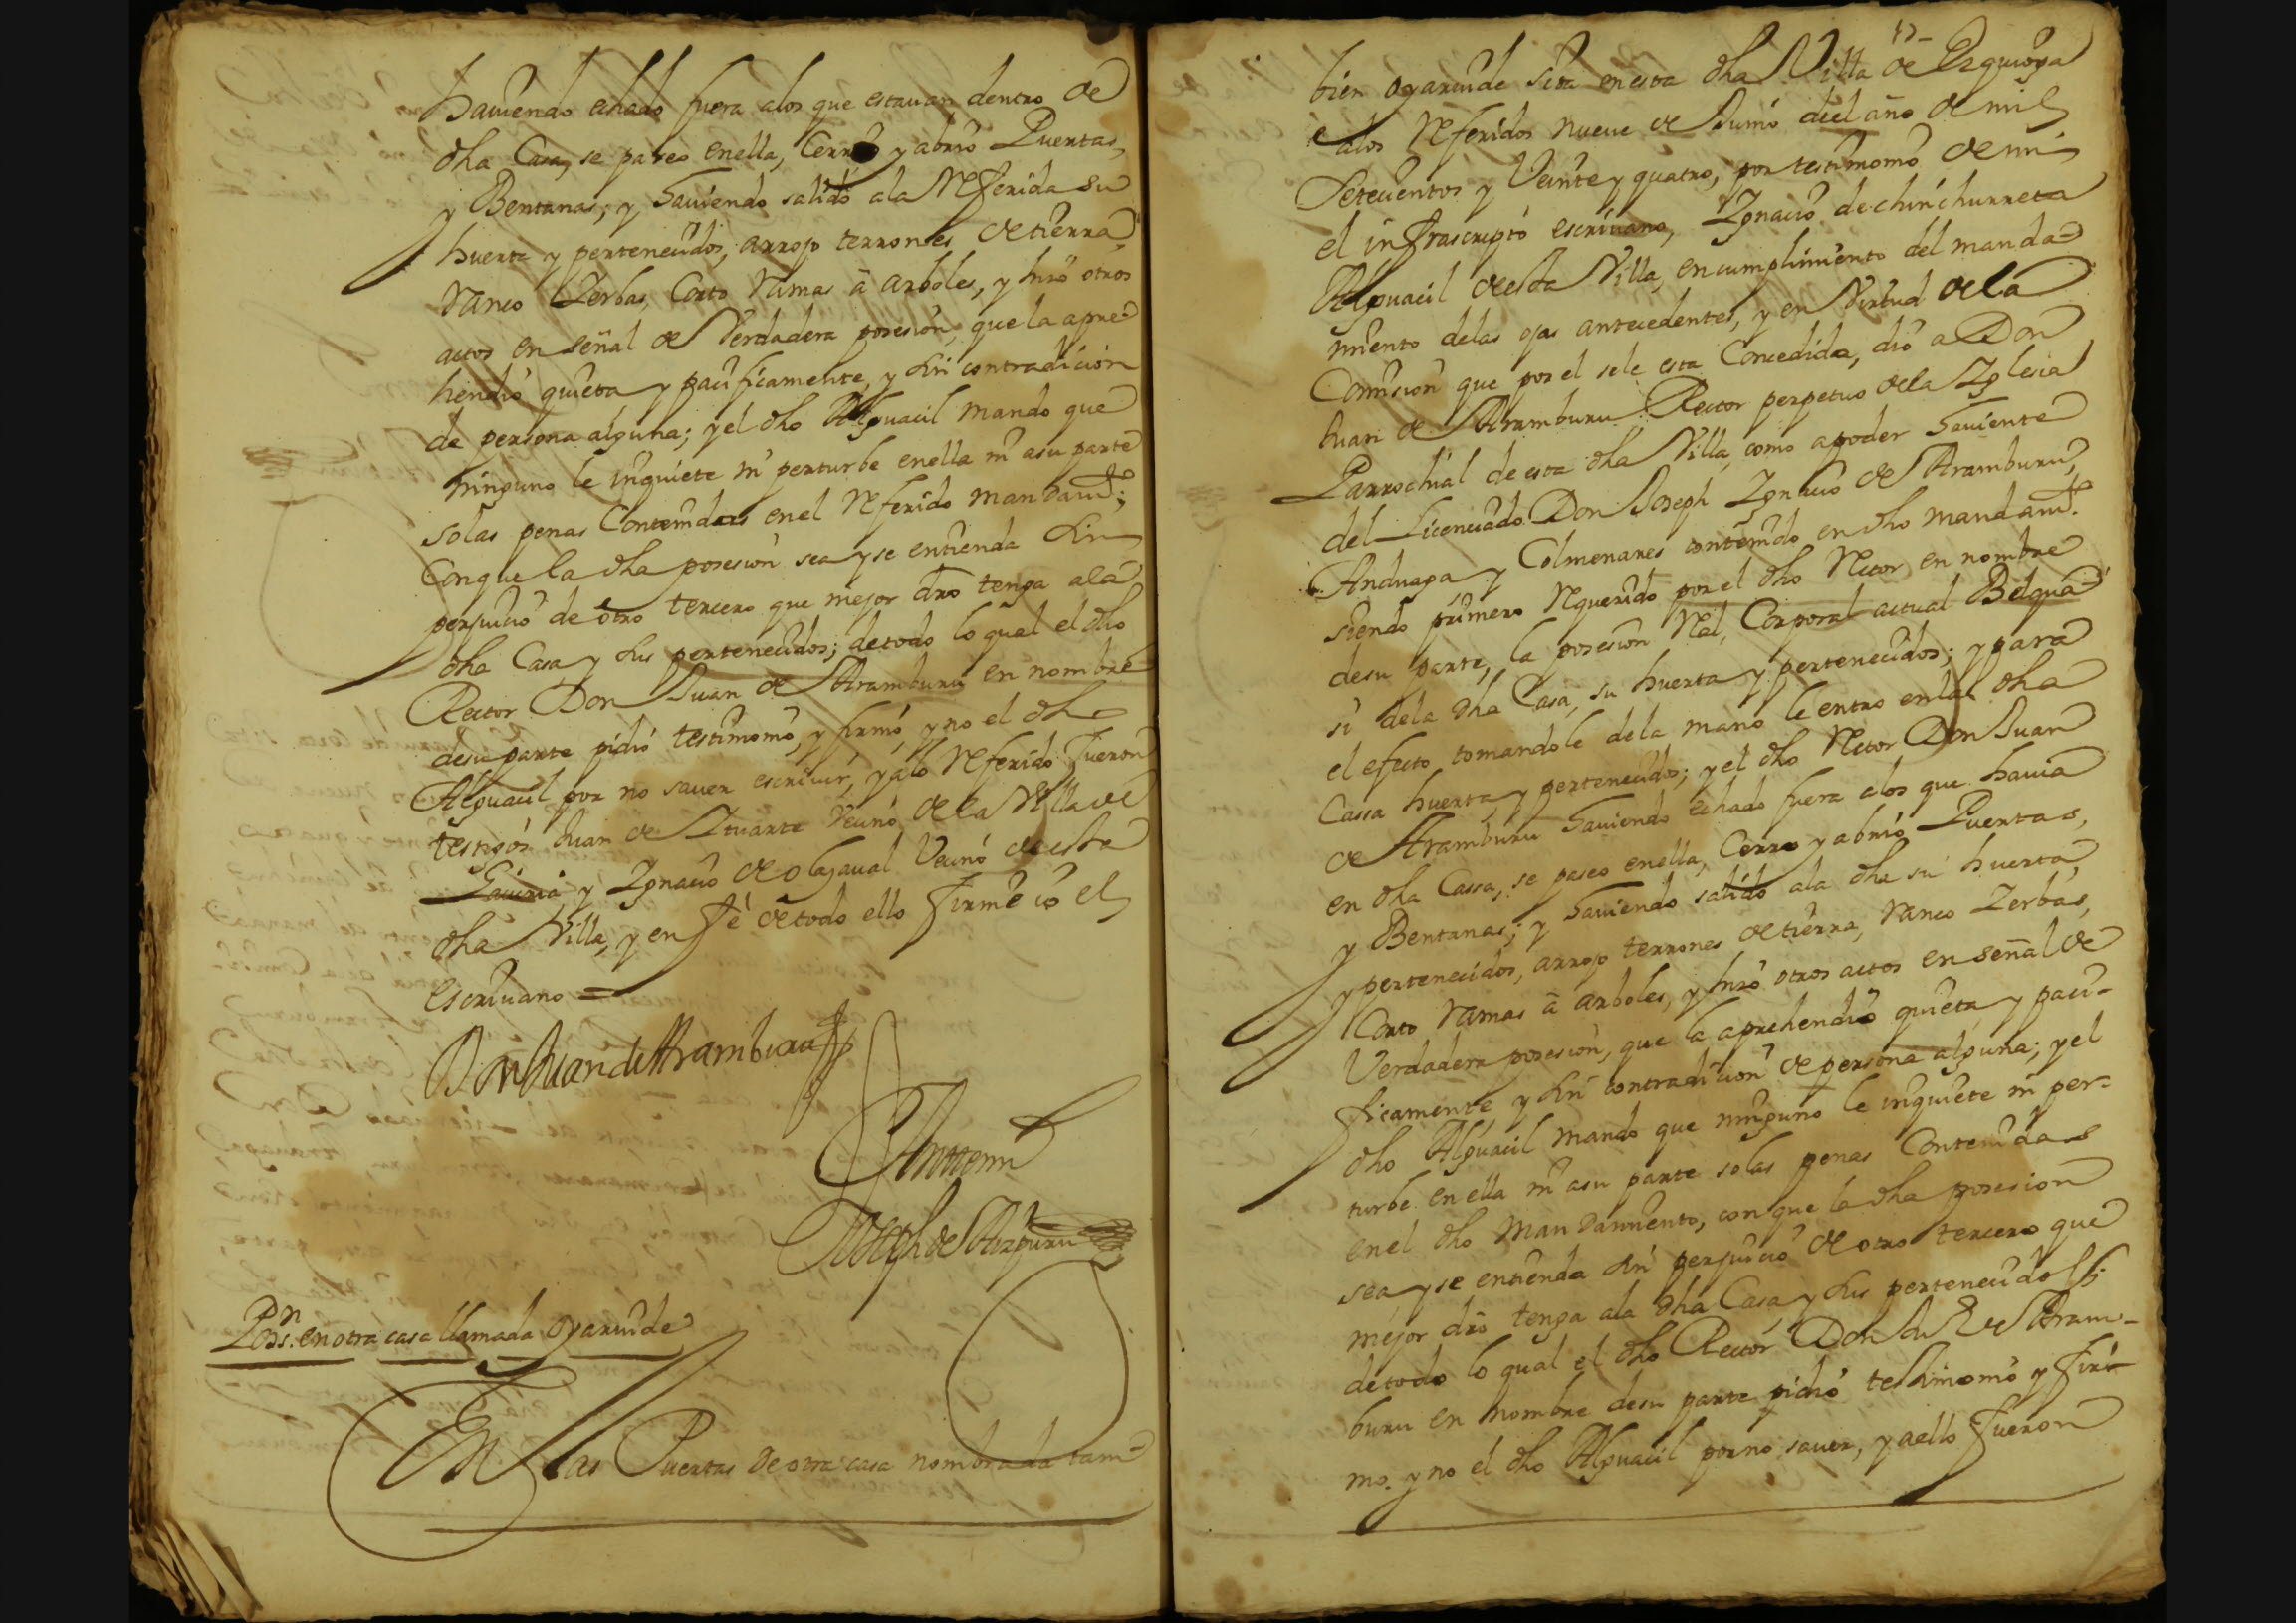 haviendo echado fuera alos que estavan dentro de
dha Casa, se paseo enella, Cerro y abrio Puertas,
y Bentanas; y haviendo salido ala Referida su
huerta y pertenecidos, arrojo terrones de tierra,
ranco Zerbas, Corto Ramas à arboles, y hizo otros
actos en señal de Verdadera posesion, que la apre=
hendio quieta y pacificamente, y sin contradicion
de persona alguna; y el dho Alguacil mando que
ninguno le inquiete ni perturbe enella ni asu parte
solas penas Contenidas enel Referido mandamto;
Conque la dha posesion sea y se entienda sin
perjuicio de otro tercero que mejor dro tenga ala
dha Casa y sus pertenecidos; detodo lo qual el dho
Rector Don Juan de Aramburu en nombre
desu parte pidio testimonio, y firmó, y no el dho
Alguacil por no saver escrivir, y alo Referido fueron
testigos Juan de Ituarte Vecino de la Villa de
Gaviria, y Ignacio de Olazaval Vecino de esta
dha Villa, y en fè de todo ello firmè io el
escrivano =
Don Juan de Aramburu
Antemi
Joseph de Aizpuru
Posn. en otra casa llamada Oyarvide
En las Puertas de otra casa nombrada tam=
bien oyarvide sita enesta dha Villa de Ezquioga
alos Referidos nueve de Junio del año de mil
Setecientos y Veinte y quatro, por testimonio de mi
el infrascripto escrivano, Ignacio de chinchurreta
Alguacil de esta Villa, en cumplimiento del manda=
miento delas ojas antecedentes, y en Virtud dela
Comision que por el sele esta Concedida, dio a Don
Juan de Aramburu Rector perpetuo dela Iglesia
Parrochial de esta dha Villa, como apoder haviente
del Licenciado Don Joseph Ignacio de Aramburu,
Anduaga, y Colmenares contenido en dho mandamto.
siendo primero Requerido por el dho Retor en nombre
desu parte, la posesion Real, Corporal actual Belqua=
si dela dha Casa, su huerta y pertenecidos; y para
el efecto tomandole dela mano le entro enla dha
Cassa huerta, y pertenecidos; y el dho Retor Don Juan
de Aramburu haviendo echado fuera alos que havia
en dha Cassa, se paseo enella, Cerro y abrio Puertas,
y Bentanas; y haviendo salido ala dha su huerta,
y pertenecidos, arrojo terrones de tierra, ranco Zerbas,
Corto Ramas à arboles, y hizo otros actos en señal de
Verdadera posesion, que la aprehendio quieta y paci-
ficamente y sin contradicion de persona alguna; y el
dho Alguacil mando que ninguno le inquiete ni per-
turbe enella ni asu parte solas penas Contenidas
enel dho Mandamiento, con que la dha posesion
sea y se entienda sin perjuicio de otro tercero que
mejor dro tenga ala dha Casa, y sus pertenecidos;
detodo lo qual el dho Rector Don Juan de Aram-
buru en nombre desu parte pidio testimonio y fir-
mo. y no el dho Alguacil por no saver, y aello fueron